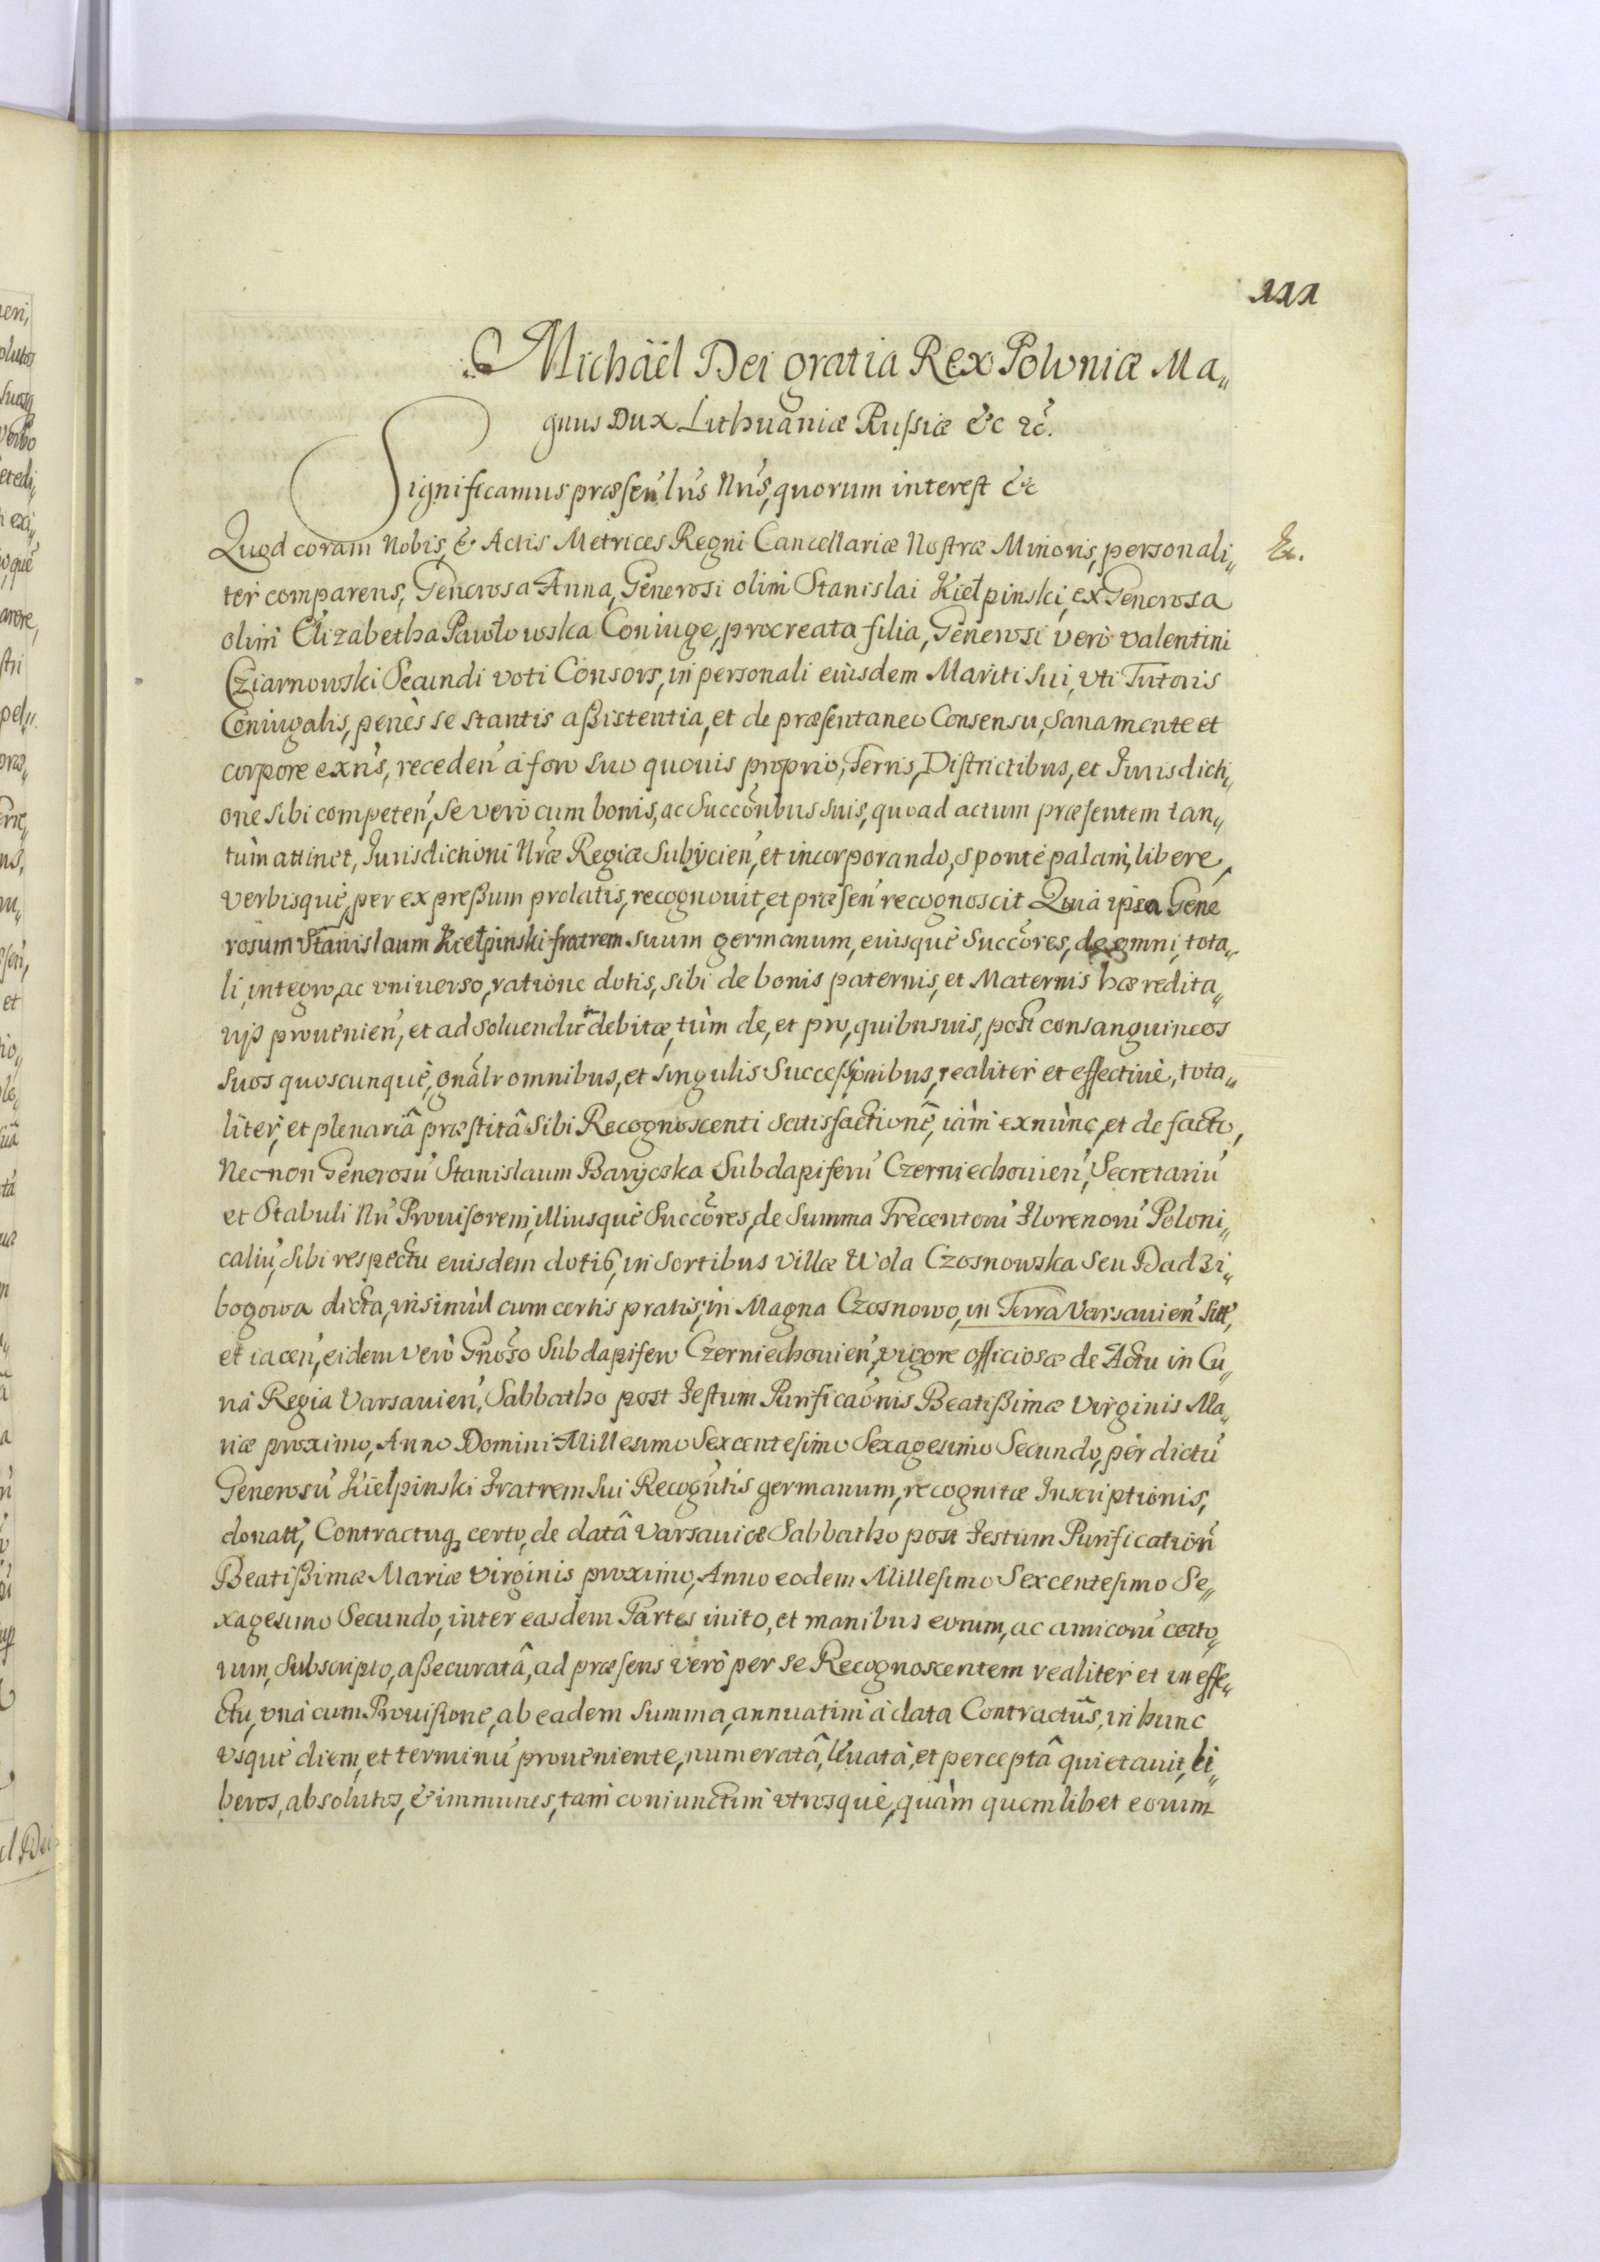 111
Michäel Dei gratia Rex Poloniæ Ma„
gnus Dux Lithuaniæ Russiæ &c &c.
Significamus præsenĺus Nrĩs, quorum interest &c
Quod coram Nobis, & Actis Metrices Regni Cancellariæ Nostræ Minoris, personali„ &.
ter comparens, Generosa Anna, Generosi olim Stanislai Kiełpinski, ex Generosa
olim Elizabetha Pawłowska Coniuge, procreata filia, Generosi verò Valentini
Cziarnowski Secundi voti Consors, in personali eiusdem Mariti sui, vti Tutoris
Coniugalis, penès se stantis aßistentia, et de præsentaneo Consensu, sana mente et
corpore exñs, receden̕ à foro suo quouis proprio, Terris, Districtibus, et Jurisdicti„
one sibi competen̕, se verò cum bonis, ac Succõribus suis, quoad actum præsentem tan„
tùm attinet, Jurisdictioni Nræ Regiæ Subÿcien̕, et incorporando, sponte palam, libere,
verbisque, per expreßum prolatis, recognouit, et præsen̕ recognoscit Quia ipsa Gene
rosum Stanislaum Kiełpinski fratrem suum germanum, eiusque Succõres, de omni, tota„
li, integro, ac vniuerso, ratione dotis, sibi de bonis paternis, et Maternis hæredita„
rijs prouenien̕, et ad soluendũ debitæ, tùm de, et pro, quibusuis, post consanguineos
suos quoscunque, gnãlr omnibus, et singulis Successionibus, realiter et effectiue, tota„
liter, et plenariâ præstitâ sibi Recognoscenti satisfactionẽ, iàm exnùnc, et de facto,
Nec-non Generosũ Stanislaum Baryczka Subdapiferũ Czerniechouien̕, Secretariũ
et Stabuli Nrĩ Prouisorem, illiusque Succõres, de Summa Trecentorũ Florenorũ Poloni„
caliũ, sibi respectu eiusdem dotis, in sortibus villæ Wola Czosnowska seu Dadzi„
bogowa dicta, insimùl cum certis pratis, in Magna Czosnowo, in Terra Varsauien̕ sitt̕,
et iacen̕, eidem verò Gnõso Subdapifero Czerniechouien̕, vigore officiosæ de Actu in Cu„
ria Regia Varsauien̕, Sabbatho post Festum Purificaõnis Beatißimæ Virginis Ma„
riæ proximo, Anno Domini Millesimo Sexcentesimo Sexagesimo Secundo, per dictũ
Generosũ Kiełpinski Fratrem sui Recogñtis germanum, recognitæ Inscriptionis,
donatt̕, Contractuq; certo, de datâ Varsauiæ Sabbatho post Festum Purification̕
Beatißimæ Mariæ Virginis proximo, Anno eodem Millesimo Sexcentesimo Se„
xagesimo Secundo, inter easdem Partes inito, et manibus eorum, ac amicorũ certo„
rum, subscripto, aßecuratâ, ad præsens verò per se Recognoscentem realiter et in effe„
ctu, vnà cum Prouisione, ab eadem summa, annuatim à data Contractûs, in hunc
vsque diem, et terminũ proueniente, numeratâ, leuatâ, et perceptâ quietauit, li„
beros, absolutos, & immunes, tam coniunctim vtrosque, quàm quemlibet eorum